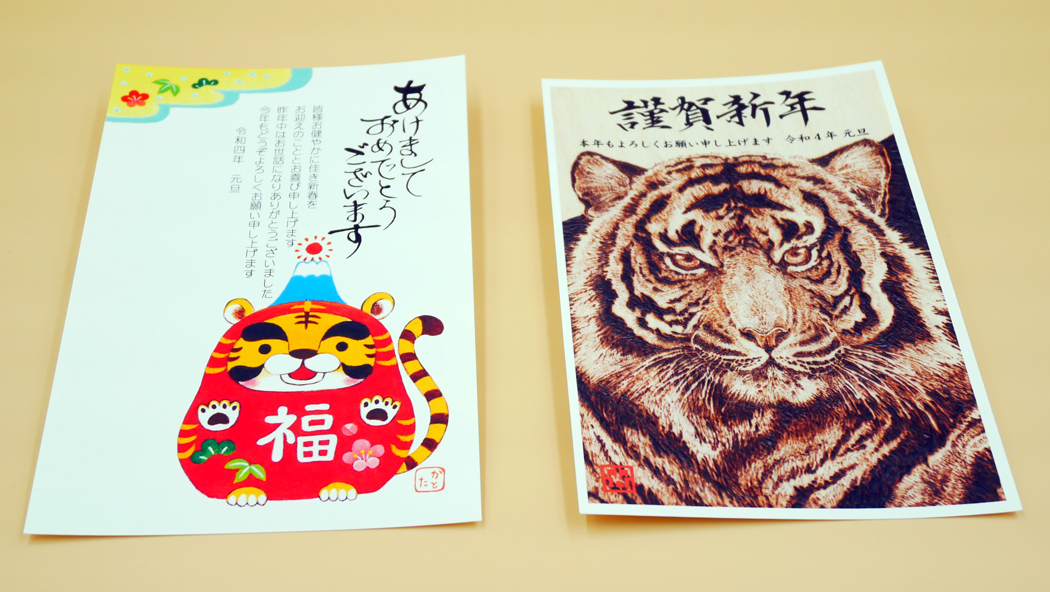 あけまして
おめでとう
ございます
皆様お健やかに佳き新春を
お迎えのこととお喜び申し上げます
昨年中はお世話になりありがとうございました
今年もどうぞよろしくお願い申し上げます
令和四年 元旦
福
かと
た
謹賀新年
本年もよろしくお願い申し上げます 令和4年 元旦